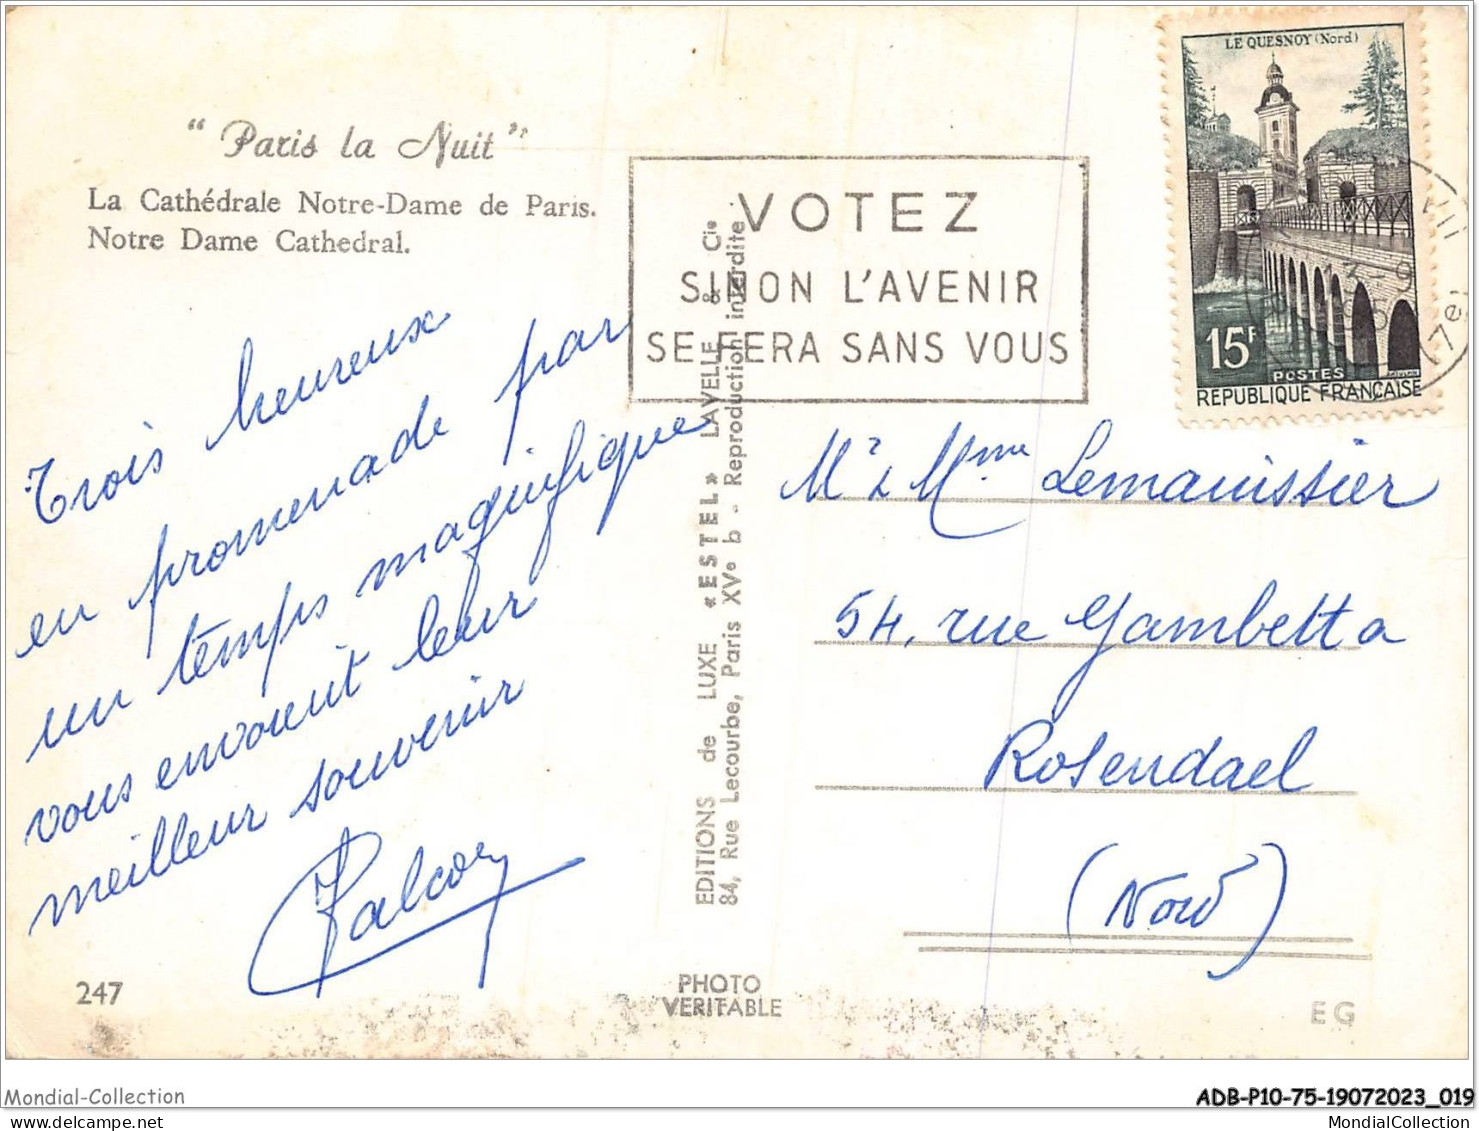 "Paris la Nuit"
La Cathédrale Notre-Dame de Paris.
Notre Dame Cathedral.
VOTEZ
SINON L'AVENIR
SE FERA SANS VOUS
LE QUESNOY (Nord)
15F
POSTES
REPUBLIQUE FRANÇAISE
13-9
7e
Trois heureux
en promenade par
un temps magnifique
vous envoient leur
meilleur souvenir
EDITIONS de LUXE «ESTEL» LAVELLE & Cie
84, Rue Lecourbe, Paris XVe b - Reproduction interdite
Mr & Mme Lemanissier
54, rue Gambetta
Rosendael
(Nord)
247
PHOTO
VERITABLE
EG
Mondial-Collection
ADB-P10-75-19072023_019
www.delcampe.net
MondialCollection